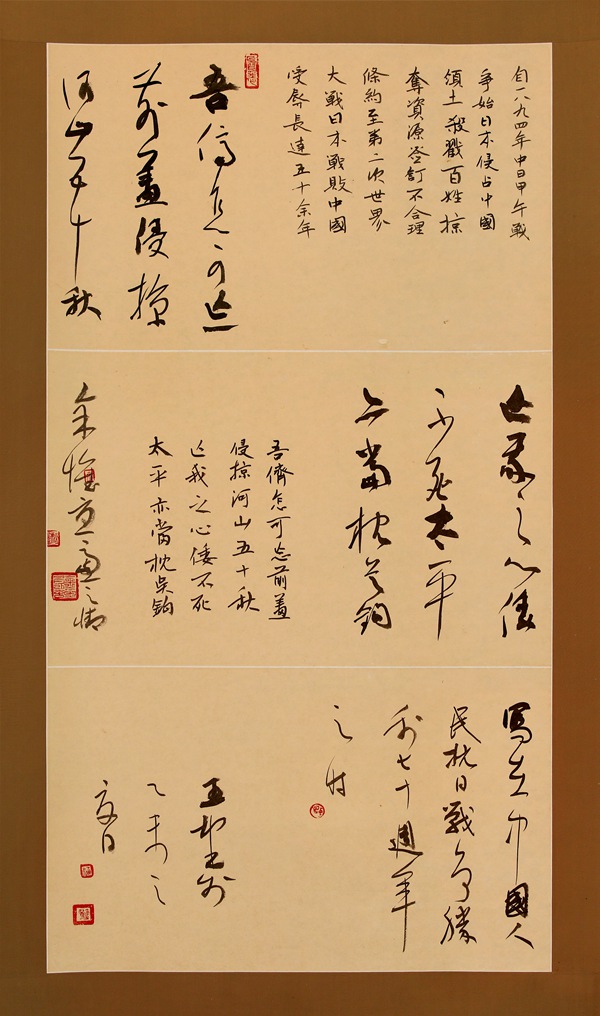 自一八九四年中日甲午戰
爭始日本侵占中國
領土殺戮百姓掠
奪資源签訂不合理
條約至第二次世界
大戰日本戰敗中國
受辱長達五十余年
吾儕怎可忘
前羞侵掠
河山五十秋
亡我之心倭
不死太平
亦當枕吴鈎
吾儕怎可忘前羞
侵掠河山五十秋
亡我之心倭不死
太平亦當枕吴鈎
寫在中國人
民抗日戰爭勝
利七十週年
之时
王
乙未之
夏日